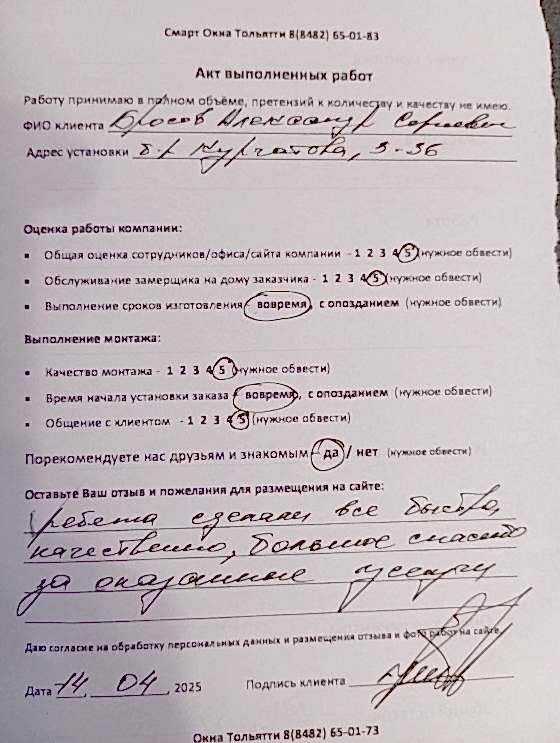 Смарт Окна Тольятти 8(8482) 65-01-83
Акт выполненных работ
Работу принимаю в полном объёме, претензий к количеству и качеству не имею.
ФИО клиента Бросов Александр Сергеевич
Адрес установки б-р Курчатова, 3-36
Оценка работы компании:
• Общая оценка сотрудников/офиса/сайта компании - 1 2 3 4 5 (нужное обвести)
• Обслуживание замерщика на дому заказчика - 1 2 3 4 5 (нужное обвести)
• Выполнение сроков изготовления - вовремя, с опозданием (нужное обвести)
Выполнение монтажа:
• Качество монтажа - 1 2 3 4 5 (нужное обвести)
• Время начала установки заказа - вовремя, с опозданием (нужное обвести)
• Общение с клиентом - 1 2 3 4 5 (нужное обвести)
Порекомендуете нас друзьям и знакомым - да / нет (нужное обвести)
Оставьте Ваш отзыв и пожелания для размещения на сайте:
ребята сделали все быстро,
качественно, большое спасибо
за оказанные услуги
Даю согласие на обработку персональных данных и размещения отзыва и фото работ на сайте
Дата 14 04, 2025 Подпись клиента
Окна Тольятти 8(8482) 65-01-73